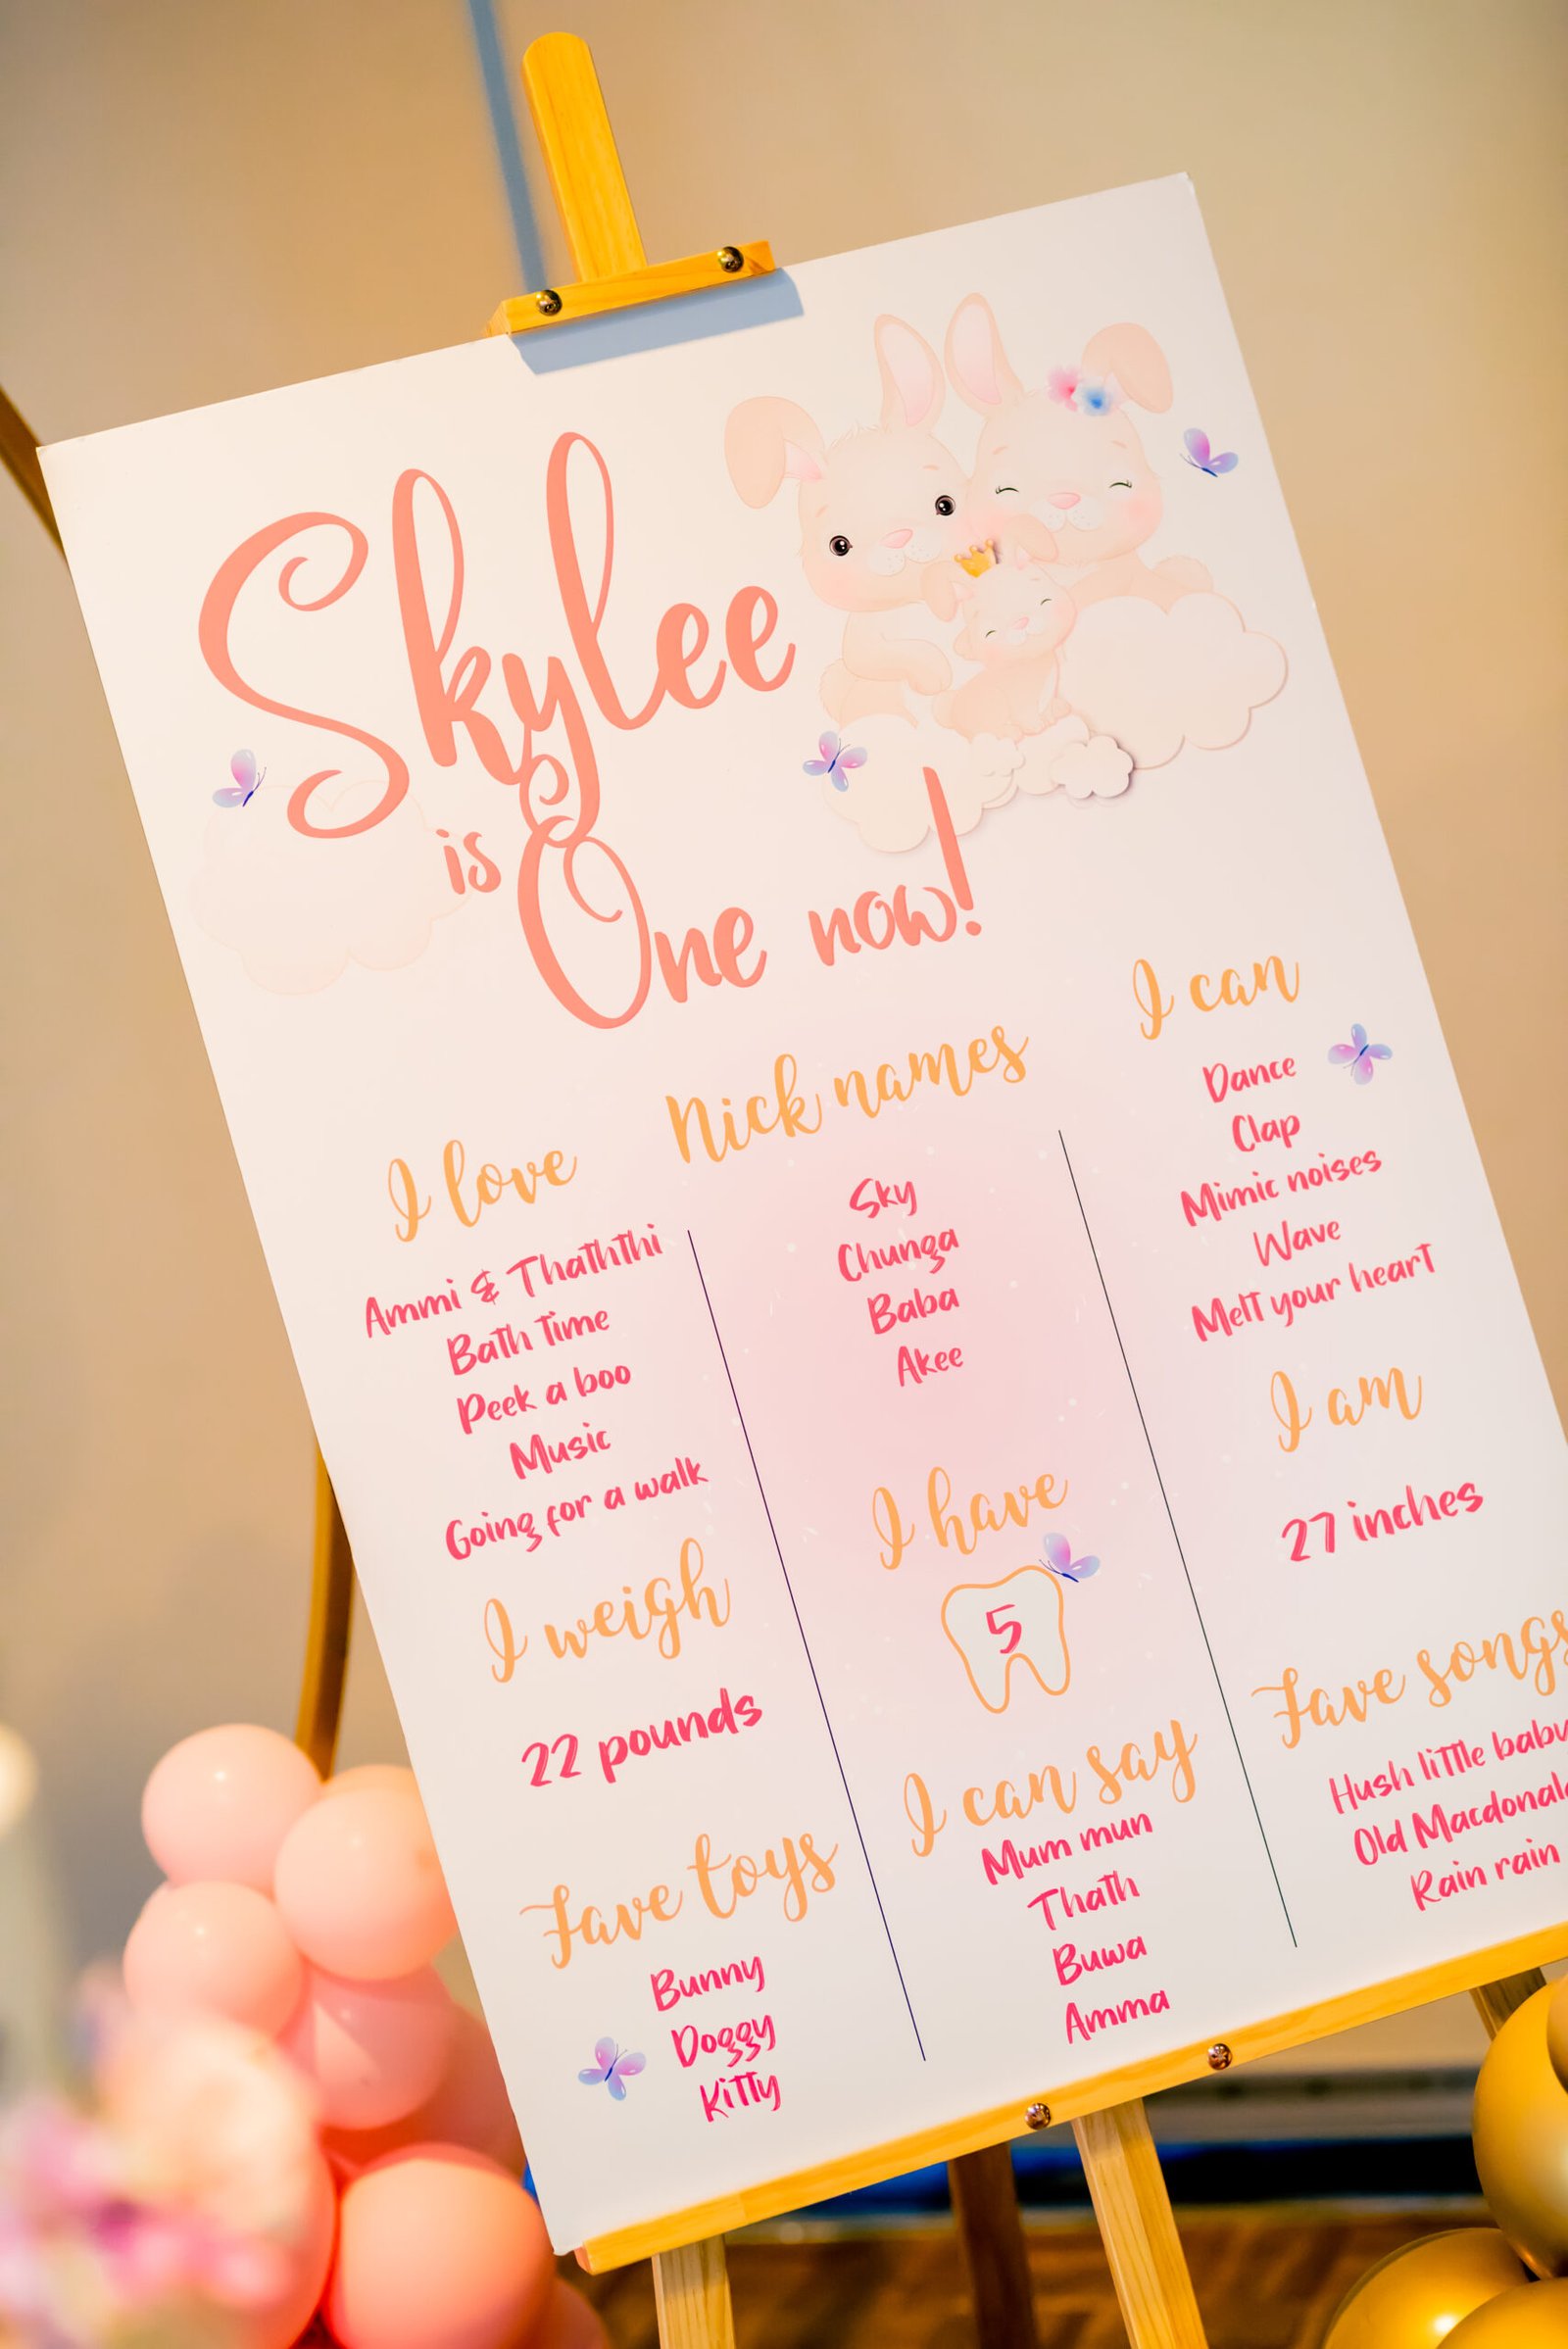 Skylee
is One now!
I love
Ammi & Thaththi
Bath time
Peek a boo
Music
Going for a walk
I weigh
22 pounds
Fave toys
Bunny
Doggy
Kitty
Nick names
Sky
Chunga
Baba
Akee
I have
5
I can say
Mum mun
Thath
Buwa
Amma
I can
Dance
Clap
Mimic noises
Wave
Melt your heart
I am
27 inches
Fave songs
Hush little baby
Old Macdonald
Rain rain